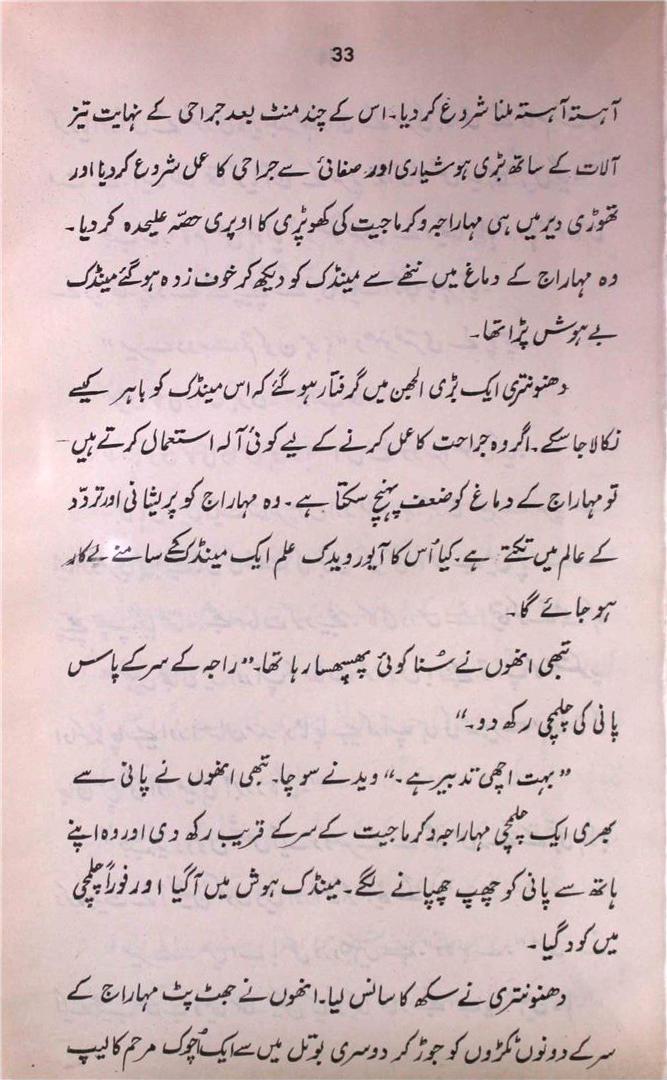 33
آہستہ آہستہ ملنا شروع کر دیا۔ اس کے چند منٹ بعد جراحی کے نہایت تیز
آلات کے ساتھ بڑی ہوشیاری اور صفائی سے جراحی کا عمل شروع کر دیا اور
تھوڑی دیر میں ہی مہاراجہ وکرماجیت کی کھوپڑی کا اوپری حصّہ علیحدہ کر دیا۔
وہ مہاراج کے دماغ میں ننھے سے مینڈک کو دیکھ کر خوف زدہ ہو گئے مینڈک
بے ہوش پڑا تھا۔
دھنونتری ایک بڑی الجھن میں گرفتار ہو گئے کہ اس مینڈک کو باہر کیسے
نکالا جا سکے۔ اگر وہ جراحت کا عمل کرنے کے لیے کوئی آلہ استعمال کرتے ہیں
تو مہاراج کے دماغ کو ضعف پہنچ سکتا ہے۔ وہ مہاراج کو پریشانی اور تردّد
کے عالم میں تکتے ہے۔ کیا اُس کا آیور ویدک علم ایک مینڈک کے سامنے بے کار
ہو جائے گا۔
تبھی انھوں نے سُنا کوئی پھسپھسا رہا تھا۔ ”راجہ کے سر کے پاس
پانی کی چلمچی رکھ دو۔“
”بہت اچھی تدبیر ہے۔“ وید نے سوچا۔ تبھی انھوں نے پانی سے
بھری ایک چلمچی مہاراجہ وکرماجیت کے سر کے قریب رکھ دی اور وہ اپنے
ہاتھ سے پانی کو چھپ چھپانے لگے۔ مینڈک ہوش میں آگیا اور فوراً چلمچی
میں کود گیا۔
دھنونتری نے سکھ کا سانس لیا۔ انھوں نے جھٹ پٹ مہاراج کے
سر کے دونوں ٹکڑوں کو جوڑ کر دوسری بوتل میں سے ایک اُچوک مرحم کا لیپ